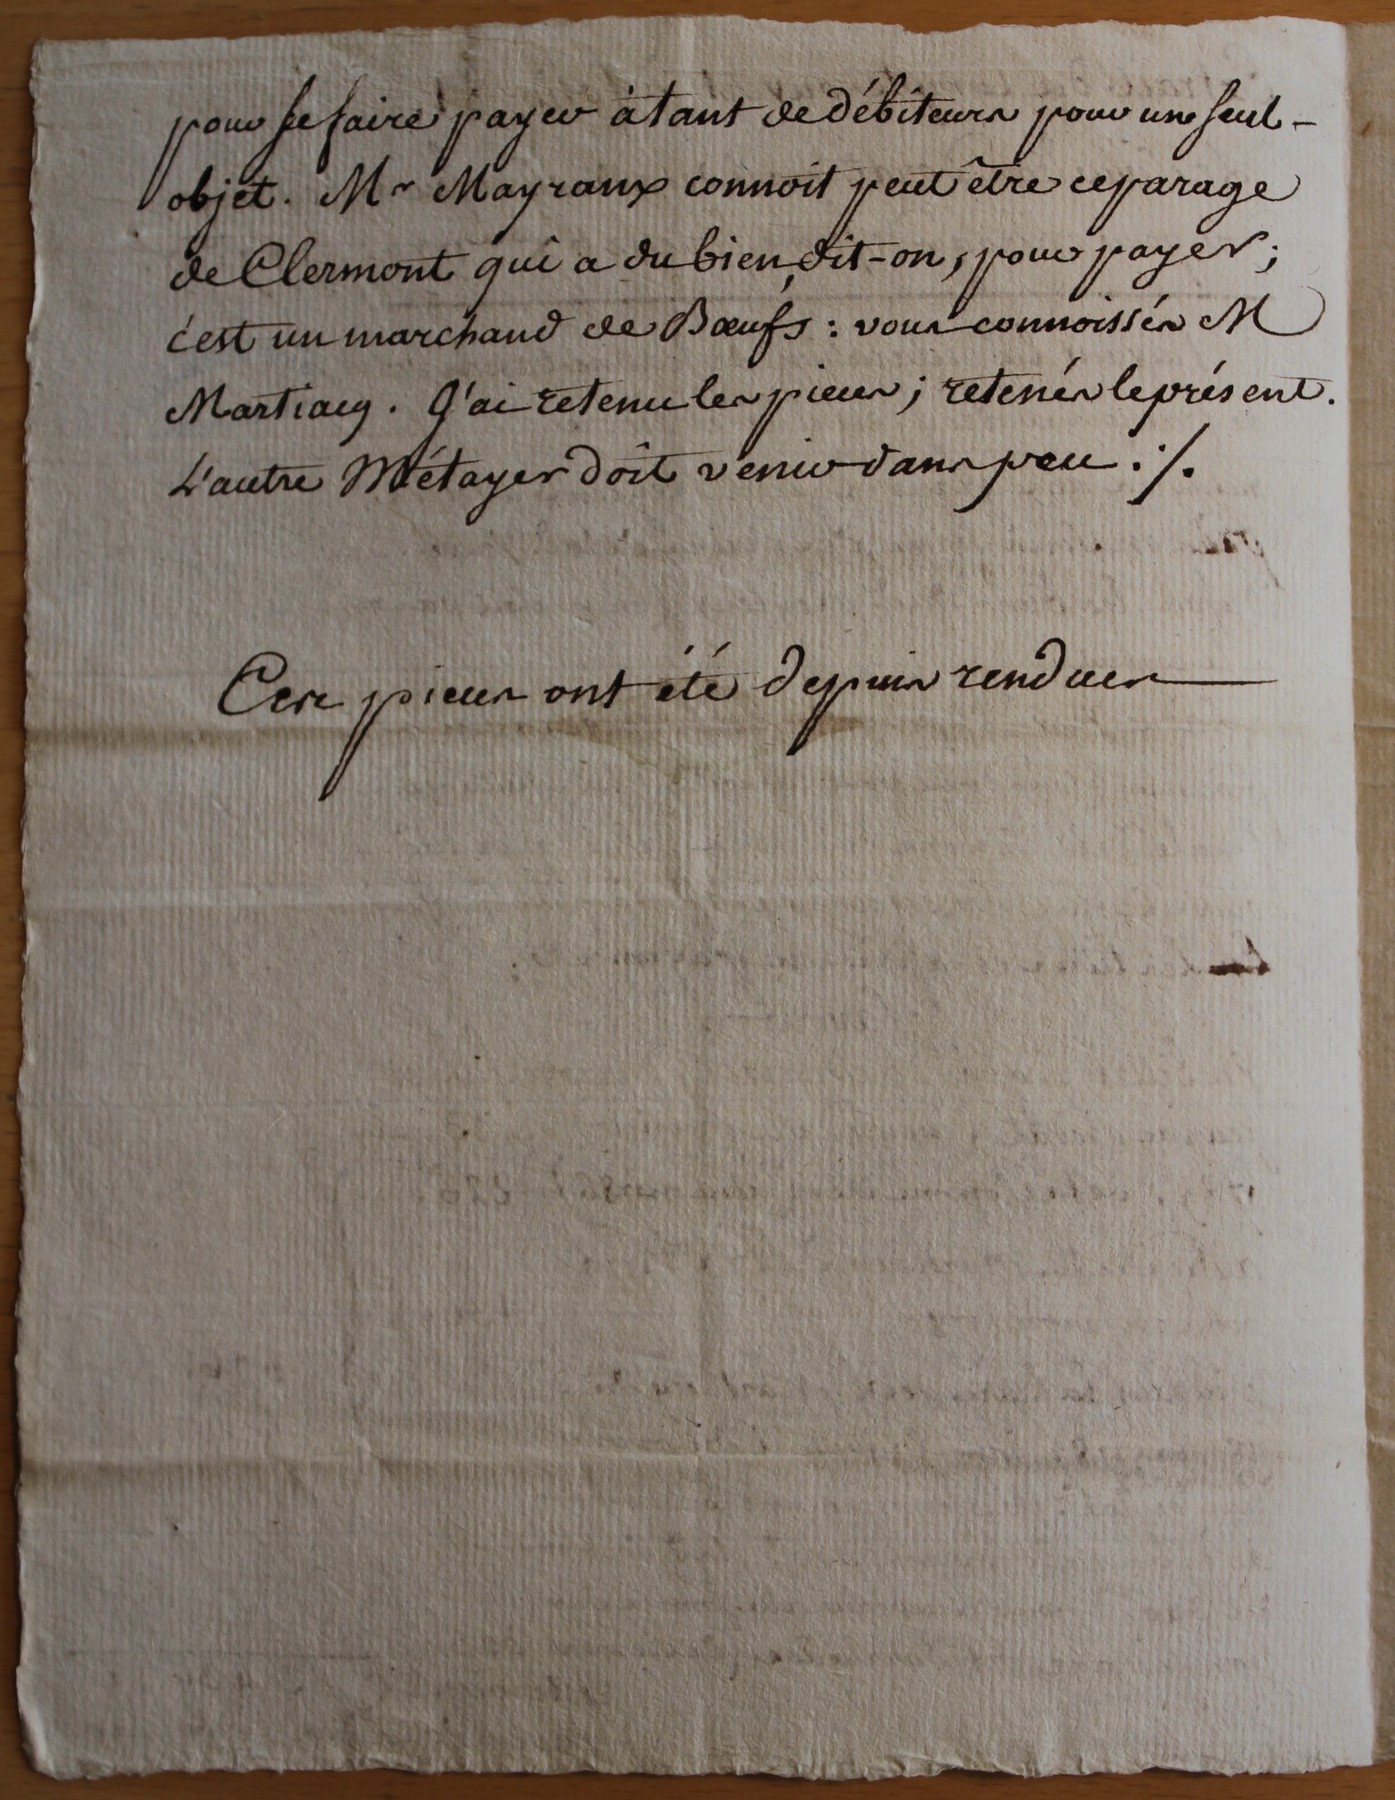 pour se faire payer à tant de débiteurs pour un seul -
objet. Mr Mayraux connoit peut être ce parage
de Clermont qui a du bien, dit-on, pour payer;
c'est un marchand de Bœufs : vous connoissés M
Martiacq. J'ai retenu les pieces; retenés le présent.
L'autre Métayer doit venir dans peu ./.
Ces pieces ont été depuis rendues